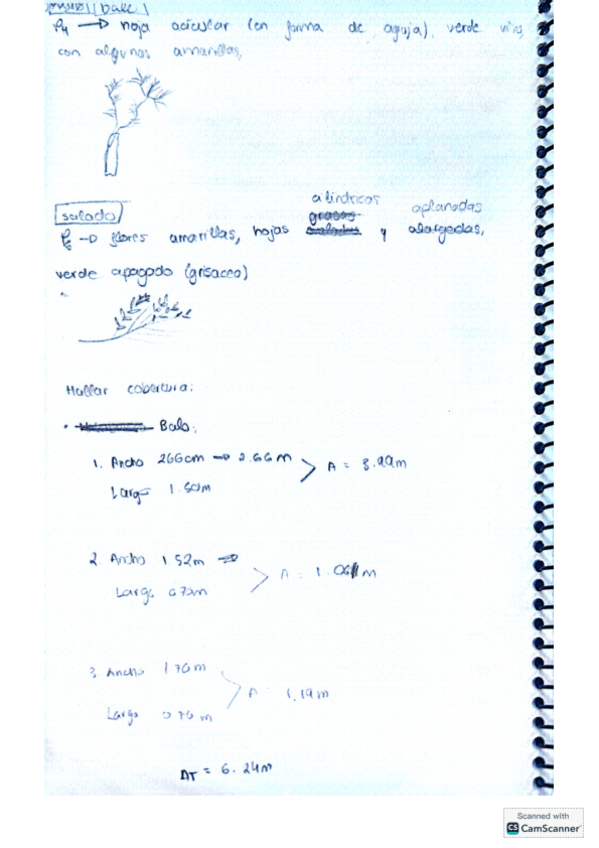 P4 → hoja acicular (en forma de aguja), verde vivo
con algunas amarillas,
salado
P5 → flores amarillas, hojas cilíndricos y aplanadas alargadas,
verde apagado (grisaceo)
Hallar cobertura:
• Balo:
1. Ancho 266cm → 2.66m > A = 3.99m
Largo 1.50m
2. Ancho 1.52m →
> A = 1.06m
Largo 0.70m
3. Ancho 1.70m
> A = 1.19m
Largo 0.70m
AT = 6.24m
Scanned with
CS CamScanner